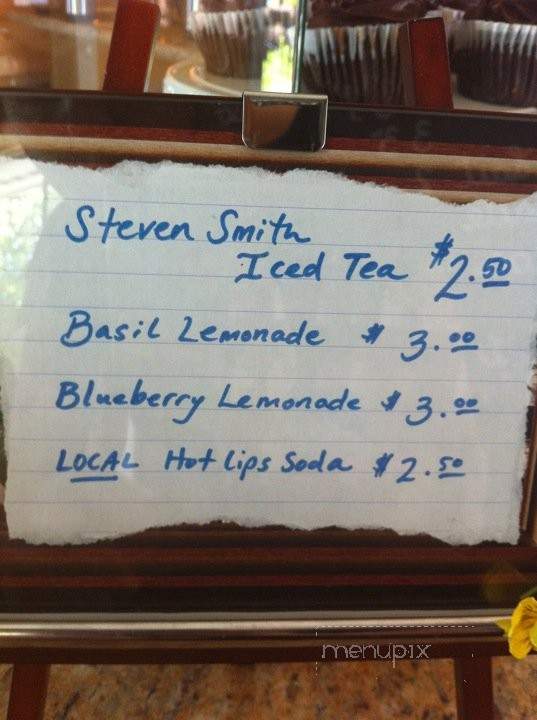 Steven Smith
Iced Tea $2.50
Basil Lemonade $3.00
Blueberry Lemonade $3.00
LOCAL Hot Lips Soda $2.50
menupix